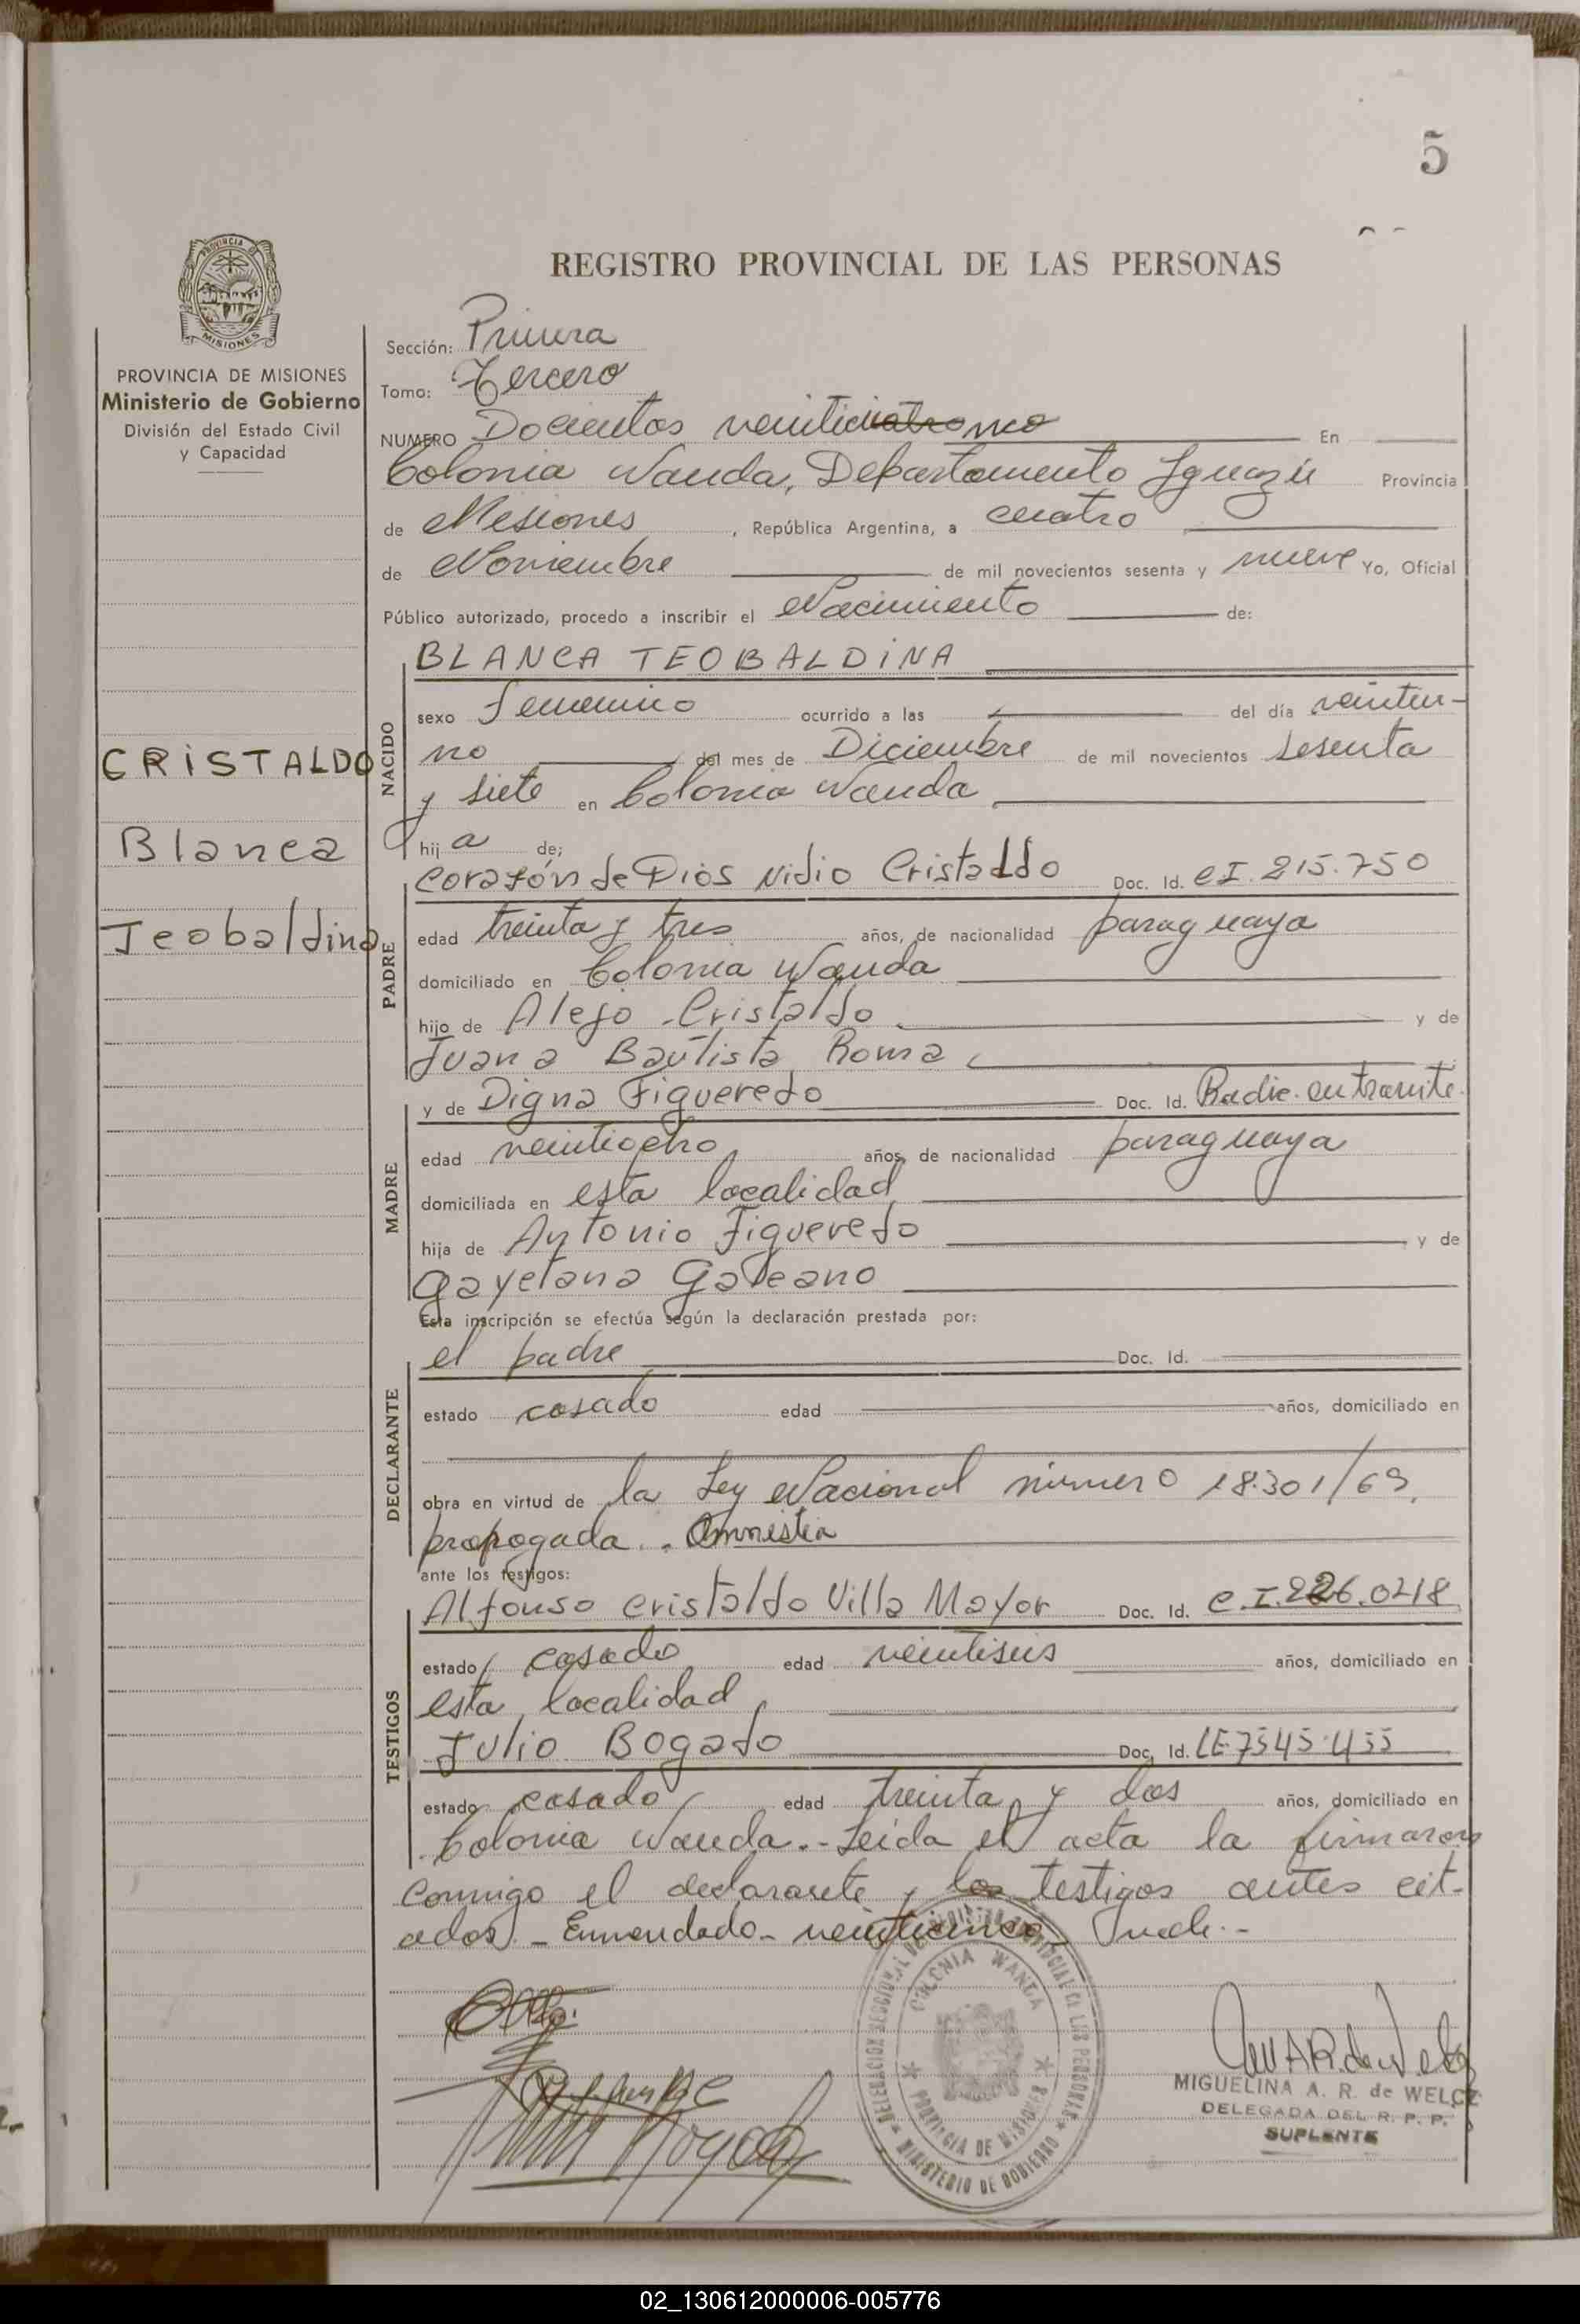 5
REGISTRO PROVINCIAL DE LAS PERSONAS
PROVINCIA DE MISIONES
Ministerio de Gobierno
División del Estado Civil
y Capacidad
CRISTALDO
Blanca
Teobaldina
Sección: Primera
Tomo: Tercero
NUMERO Docientos veinticinco En
Colonia Wanda, Departamento Iguazú Provincia
de Misiones, República Argentina, a cuatro
de Noviembre de mil novecientos sesenta y nueve Yo, Oficial
Público autorizado, procedo a inscribir el Nacimiento de:
NACIDO
BLANCA TEOBALDINA
sexo femenino ocurrido a las del día veintiu-
no del mes de Diciembre de mil novecientos sesenta
y siete en Colonia Wanda
hija de;
PADRE
Corazón de Dios Nidio Cristaldo Doc. Id. CI. 215.750
edad treinta y tres años, de nacionalidad paraguaya
domiciliado en Colonia Wanda
hijo de Alejo Cristaldo y de
Juana Bautista Roma
MADRE
y de Digna Figueredo Doc. Id. Radic. en tramite.
edad veintiocho años, de nacionalidad paraguaya
domiciliada en esta localidad
hija de Antonio Figueredo y de
Gayetana Galeano
Esta inscripción se efectúa según la declaración prestada por:
DECLARANTE
el padre Doc. Id.
estado casado edad años, domiciliado en
obra en virtud de la Ley Nacional número 18.301/69,
propogada. Amnistia
ante los testigos:
TESTIGOS
Alfonso Cristaldo Villa Mayor Doc. Id. C.I. 226.0218
estado casado edad veintiseis años, domiciliado en
esta localidad
Julio Bogado Doc. Id. LE 7545.455
estado casado edad treinta y dos años, domiciliado en
Colonia Wanda.- Leída el acta la firmaron
conmigo el declarante y los testigos antes cit-
ados - Enmendado - veinticinco
COLONIA WANDA
PROVINCIA DE MISIONES
MINISTERIO DE GOBIERNO
MIGUELINA A. R. de WELCZ
DELEGADA DEL R. P. P.
SUPLENTE
02_130612000006-005776